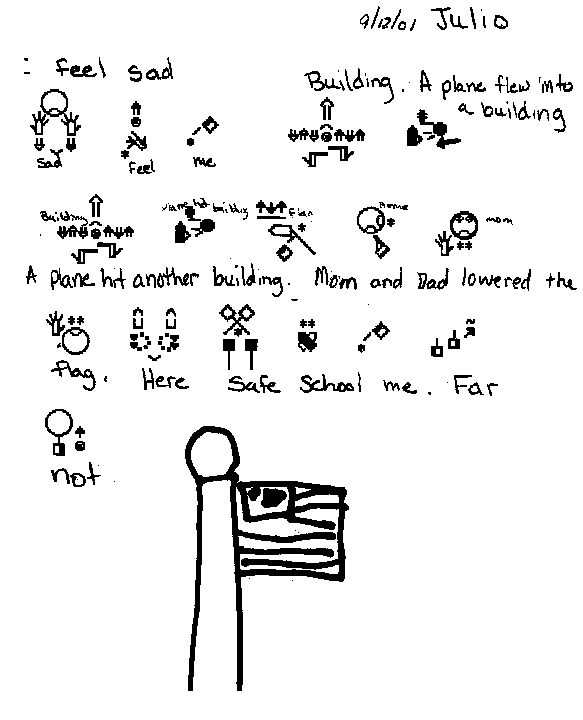 9/12/01 Julio
I feel sad
Building. A plane flew into
a building
sad feel me
Building plane hit building flag home mom
A plane hit another building. Mom and Dad lowered the
flag. Here safe school me. Far
not